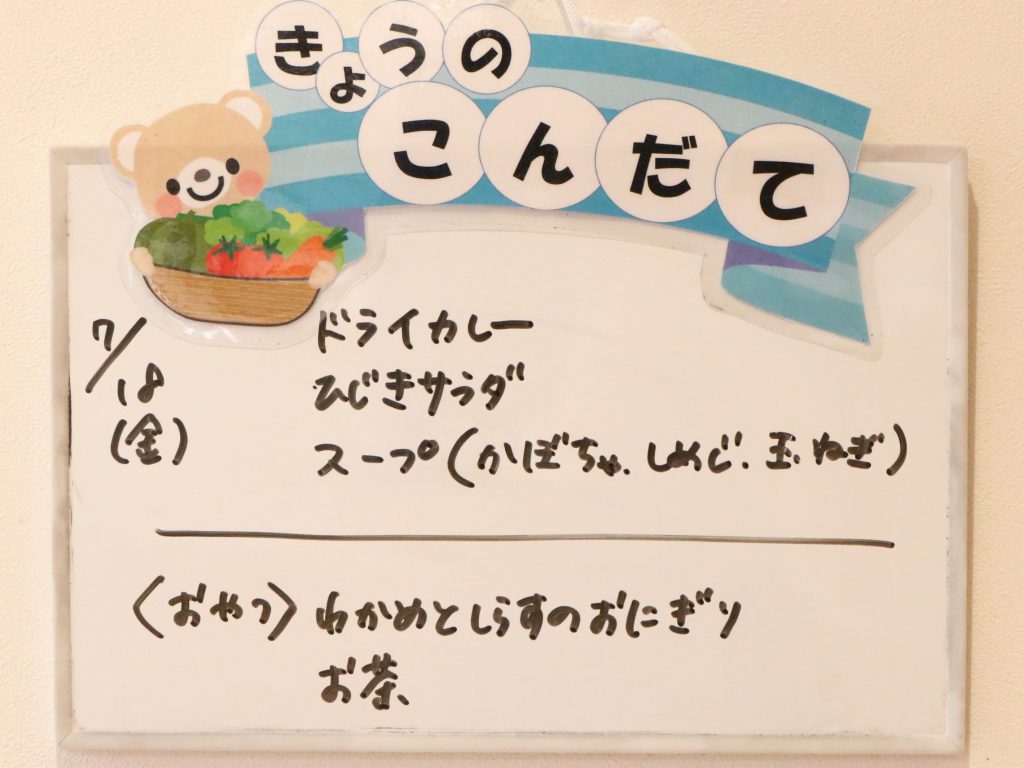 きょうの
こんだて
7/18
(金)
ドライカレー
ひじきサラダ
スープ(かぼちゃ、しめじ、玉ねぎ)
〈おやつ〉わかめとしらすのおにぎり
お茶